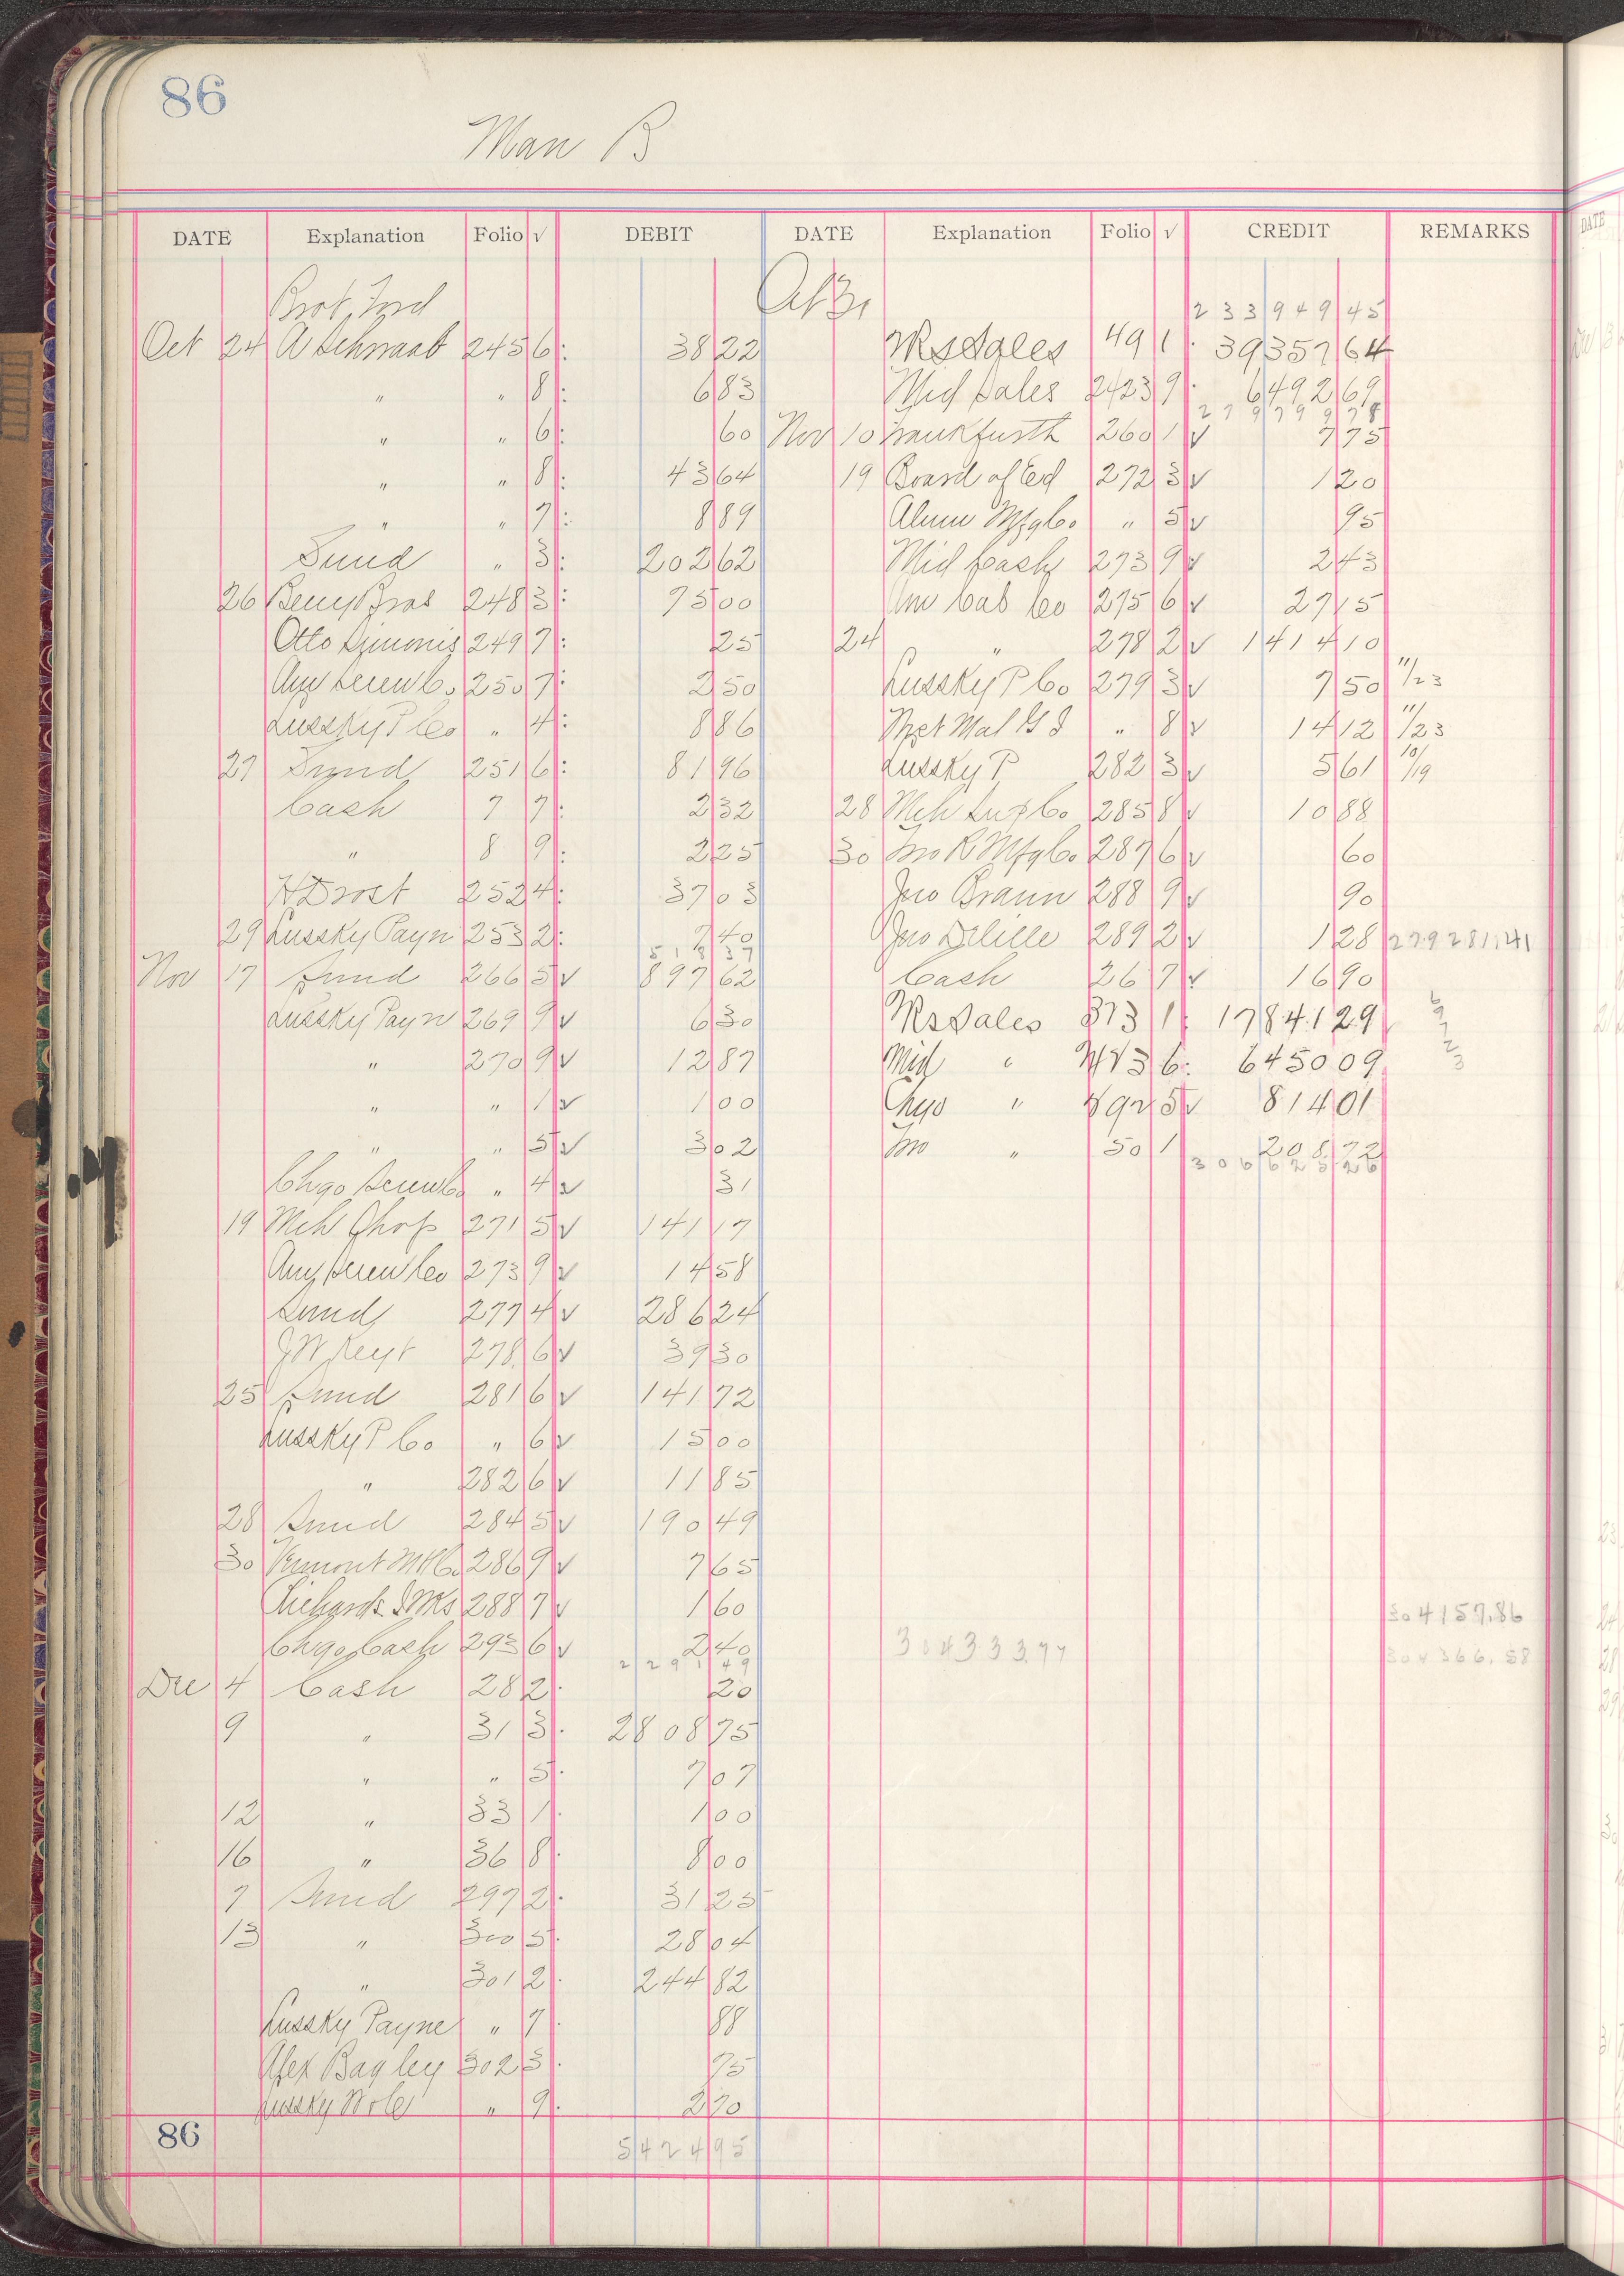 86
Man B
DATE Explanation Folio √ DEBIT DATE Explanation Folio √ CREDIT REMARKS
Brot Ford Oct 31 233949 45
Oct 24 A Schwaab 245 6: 38 22 Sales 49 1: 39357 64
" " 8: 6 83 Mid Sales 2423 9: 6492 69
279799 78
" " 6: 60 Nov 10 Frankfurth 260 1 √ 7 75
" " 8: 43 64 19 Board of Ed 272 3 √ 1 20
" " 7: 8 89 Alum Mfg Co. " 5 √ 95
Sund " 3: 202 62 Mid Cash 273 9 √ 2 43
26 Berry Bros 248 3: 75 00 Am Cab Co 275 6 √ 27 15
Otto Simonis 249 7: 25 24 " 278 2 √ 1414 10
Am Screw Co. 250 7: 2 50 Lussky P Co 279 3 √ 7 50 11/23
Lussky P Co " 4: 8 86 Met Mal " 8 √ 14 12 11/23
27 Sund 251 6: 81 96 Lussky P 282 3 √ 5 61 10/19
Cash 7 7: 2 32 28 Mch Sup Co. 285 8 √ 10 88
" 8 9: 2 25 30 Mfg Co. 287 6 √ 60
H Drost 252 4: 37 03 Jno Braun 288 9 √ 90
29 Lussky Payn 253 2: 7 40 Jno Delille 289 2 √ 1 28 279281.41
518 37
Nov 17 Sund 266 5 √ 897 62 Cash 26 7 √ 16 90
Lussky Payn 269 9 √ 6 30 Sales 373 1: 17841 29
" 270 9 √ 12 87 Mid " 6: 6450 09
" " 1 √ 1 00 Chgo " 5 √ 814 01
" " 5 √ 3 02 " 50 1 208 72
306625 26
Chgo Screw Co " 4 √ 31
19 Mch Shop 271 5 √ 141 17
Am Screw Co 273 9 √ 14 58
Sund 277 4 √ 286 24
J W Reyt 278 6 √ 39 30
25 Sund 281 6 √ 141 72
Lussky P Co " 6 √ 15 00
" 282 6 √ 11 85
28 Sund 284 5 √ 190 49
30 Vermont M Co. 286 9 √ 7 65
Richards 288 7 √ 1 60 304157.86
Chgo Cash 293 6 √ 2 40 304333.77 304366.58
2291 49
Dec 4 Cash 28 2: 20
9 " 31 3: 2808 75
" " 5: 7 07
12 " 33 1: 1 00
16 " 36 8: 8 00
7 Sund 297 2: 31 25
13 " 300 5: 28 04
" 301 2: 244 82
Lussky Payne " 7: 88
Alex Bagley 302 3: 75
Lussky " 9: 2 70
86 5424 95